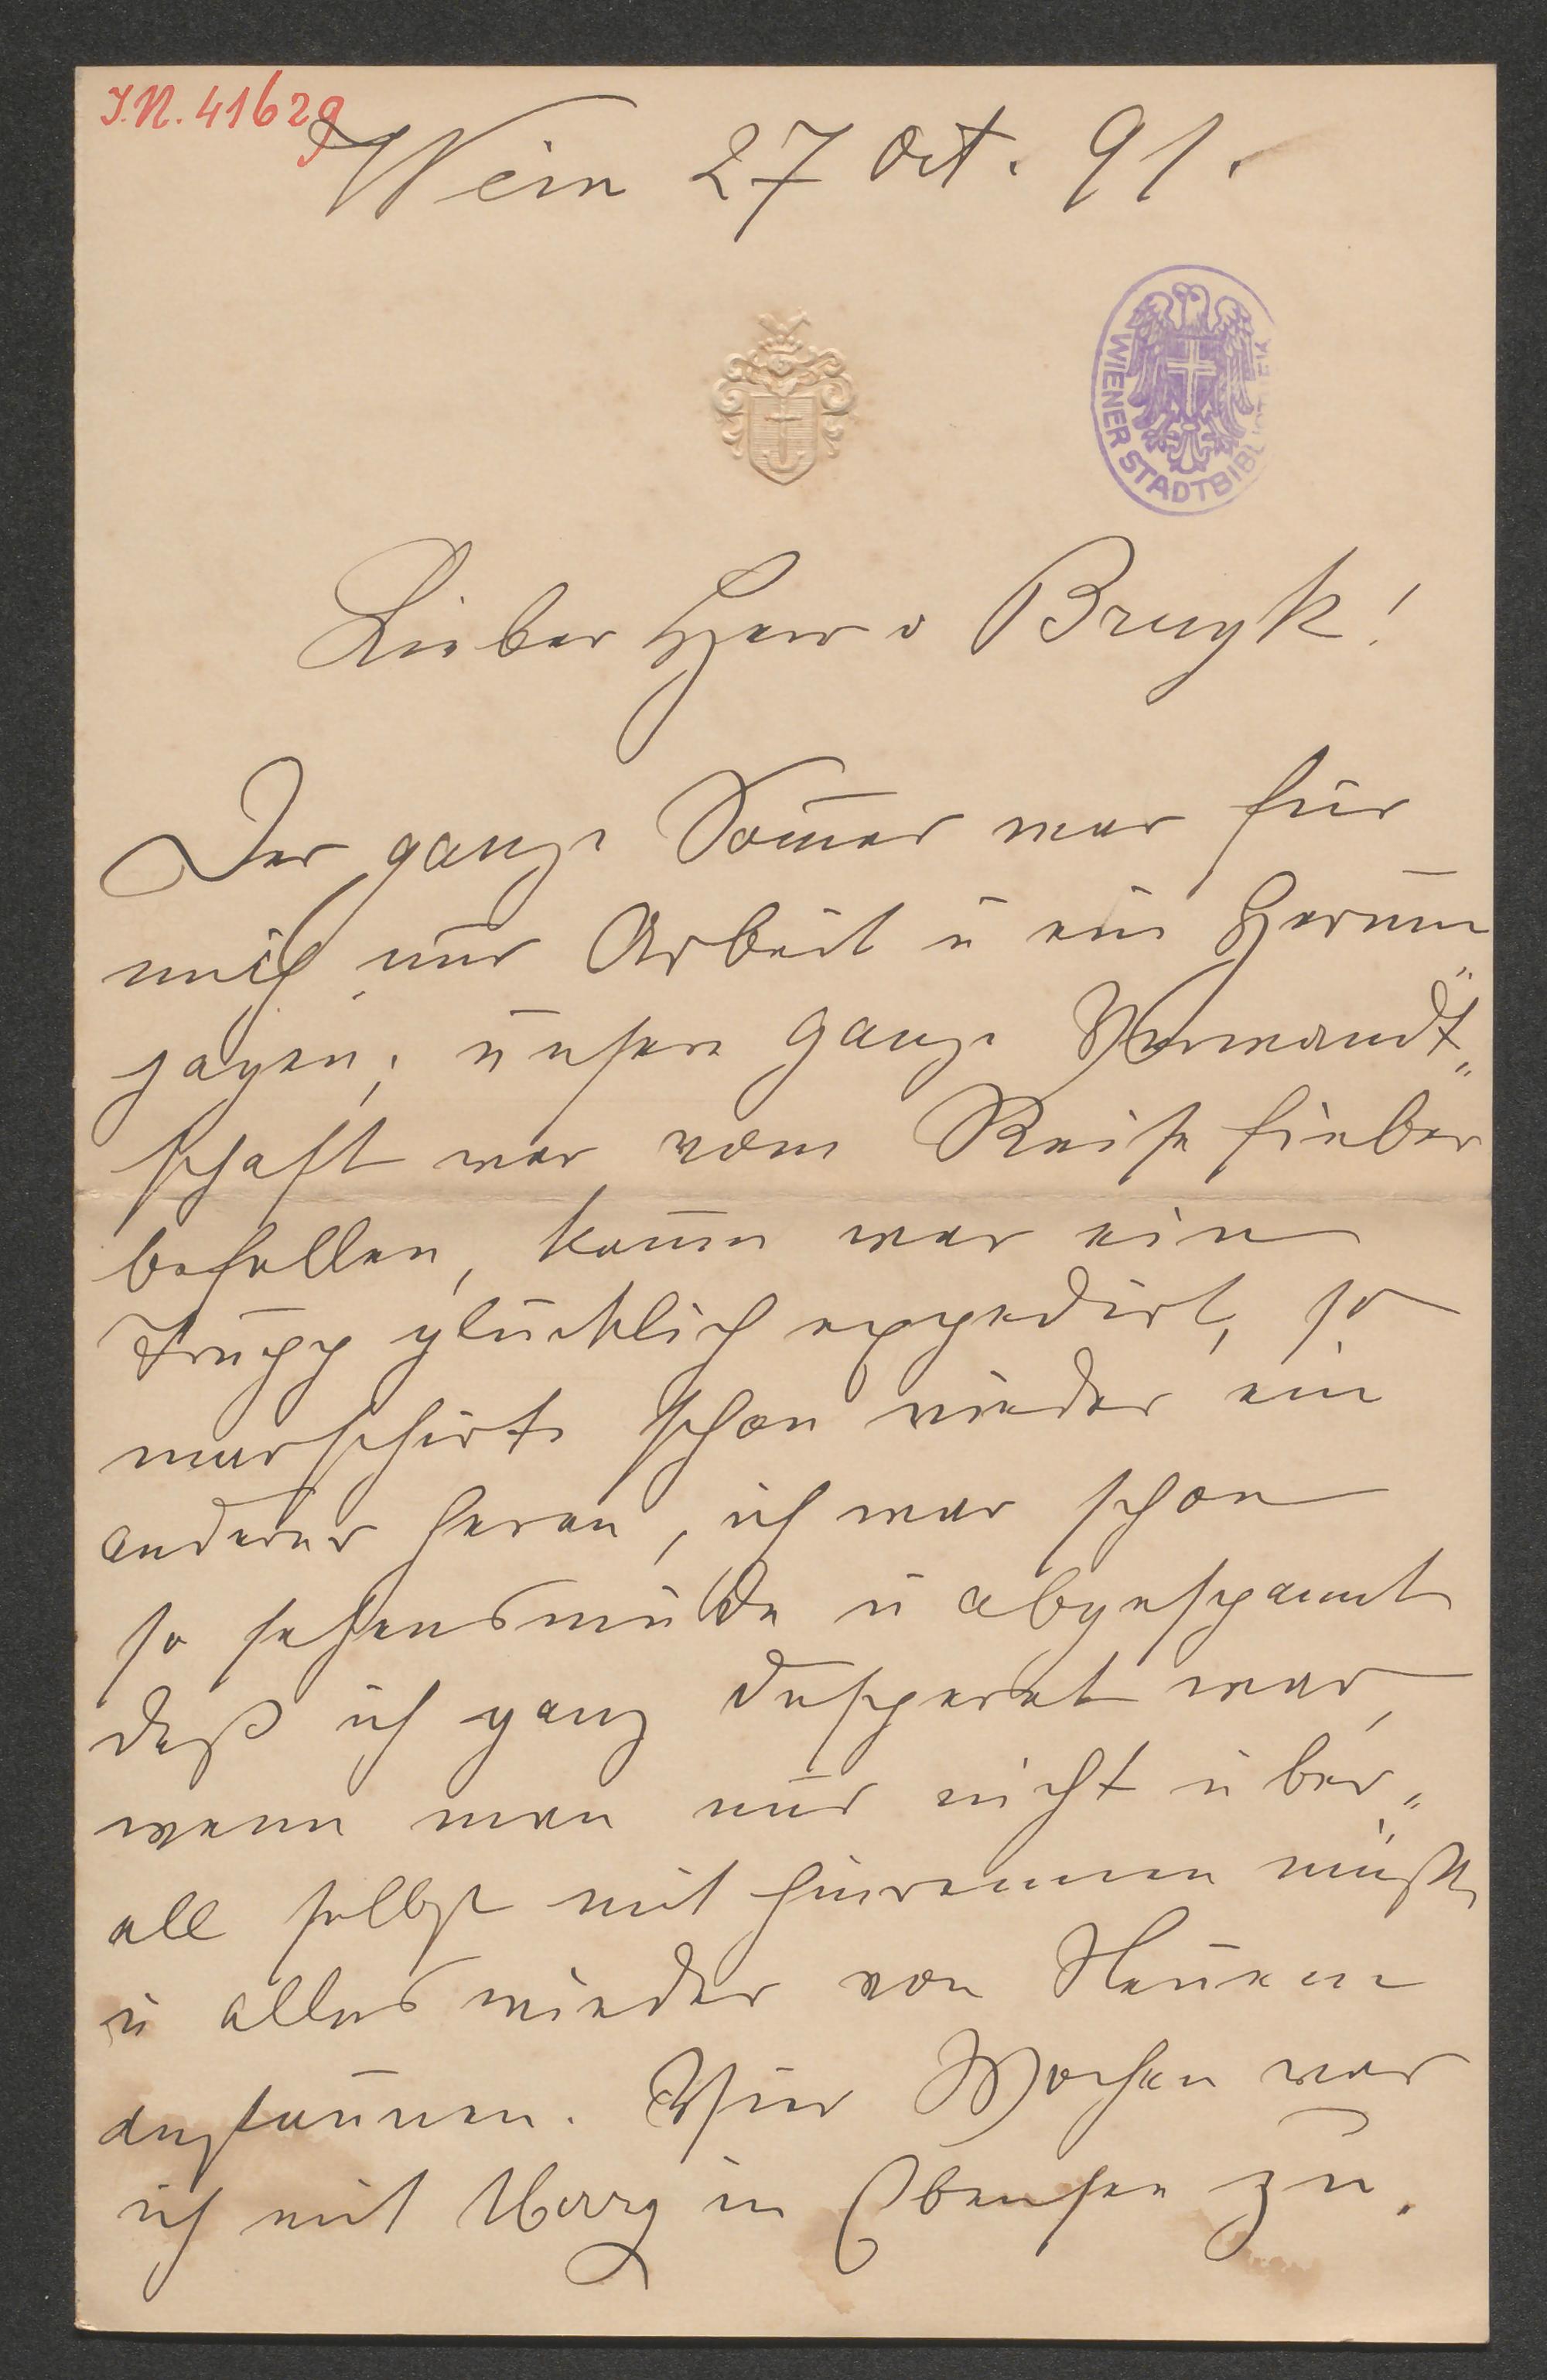 I.N. 41629
Wien 27 Oct. 91.
WIENER STADTBIBLIOTHEK
Lieber Herr v Bruyk!
Der ganze Som̄er war für
mich nur Arbeit u ein Herum„
jagen; unsere ganze Verwandt„
schaft war vom Reisefieber
befallen, kaum war ein
Trupp glücklich expedirt, so
marschirte schon wieder ein
anderer heran, ich war schon
so sehensmüde u abgespannt
daß ich ganz desperat war,
wenn man nur nicht über„
all selbst mit hinrennen müßte
u alles wieder von Neuem
anstaunen. Vier Wochen war
ich mit in Ebensee zu.